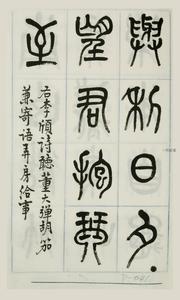 與利日夕
望君抱琴
至
右李頎詩聽董大彈胡笳
兼寄語弄房給事